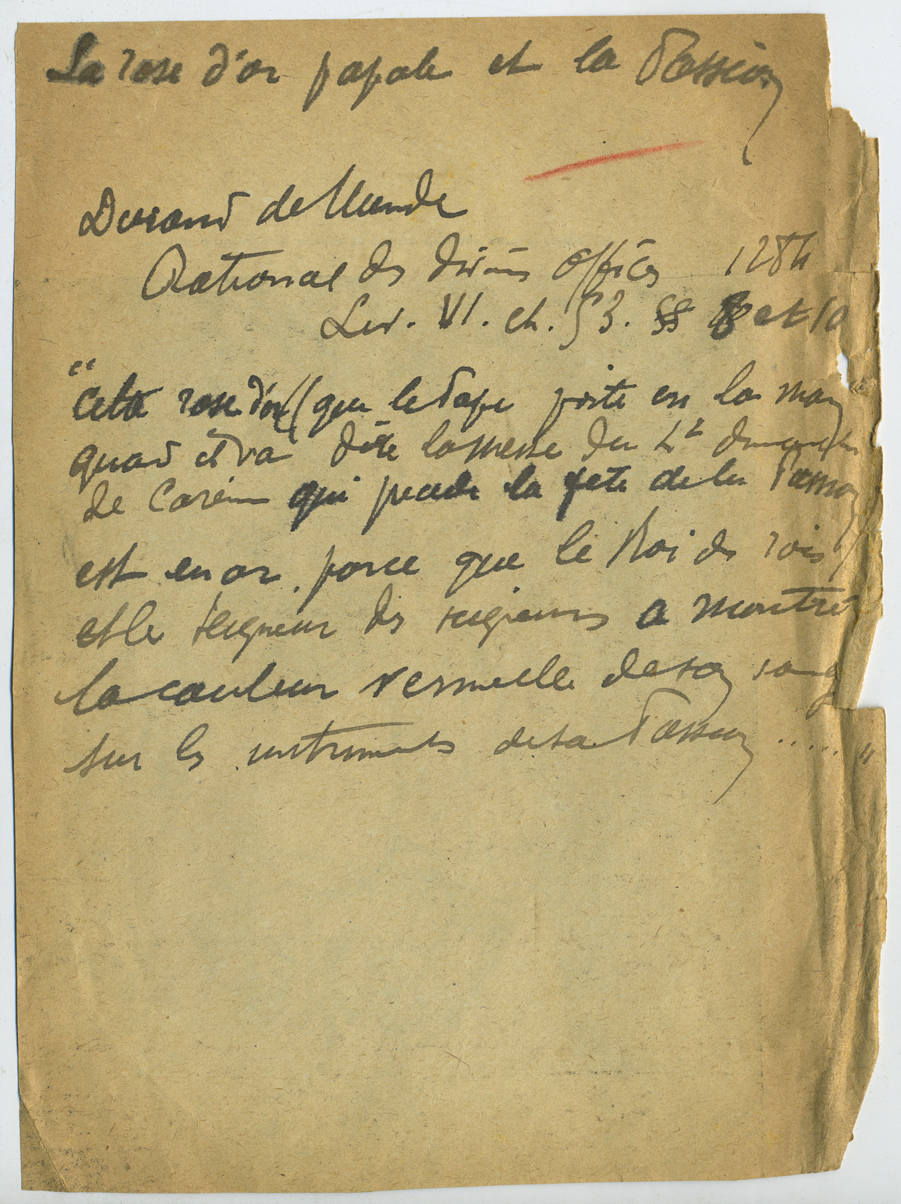 La rose d'or papale et la Passion
Durand de Mende
Rational des divins offices 1284
Liv. VI. ch. 53. §§ 8 et 10
"Cette rose d'or (que le Pape porte en la main
quand il va dire la messe du 4e dimanche
de Carême qui precede la fete de la Passion
est en or parce que le Roi des rois
et le Seigneur des seigneurs a montré
la couleur vermeille de son sang
sur les instruments de sa Passion ...... "